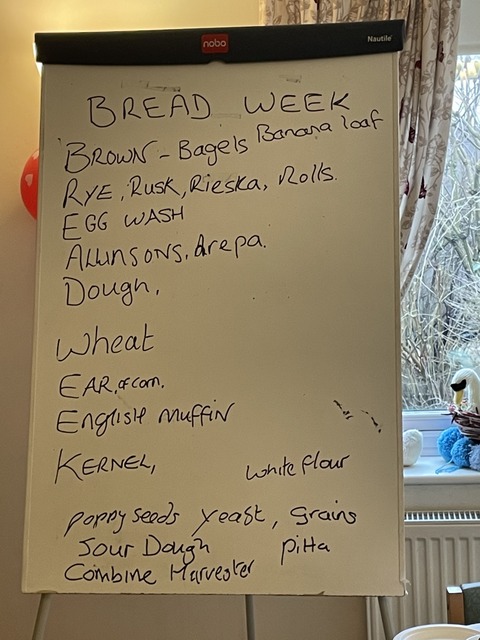 nobo
Nautile
BREAD WEEK
BROWN - Bagels Banana loaf
RYE, Rusk, Rieska, Rolls.
EGG WASH
ALLINSONS, Arepa.
Dough,
Wheat
EAR, of corn.
English Muffin
KERNEL,
white flour
Poppy seeds yeast, grains
Sour Dough pitta
Combine Harvester